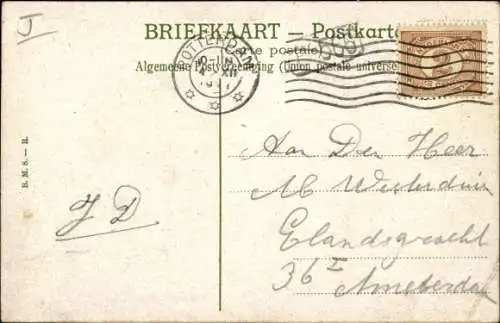 J
BRIEFKAART — Postkarte
Carte postale
Algemeene Postvereeniging (Union postale universe
ROTTERDAM
B. M. S. — R.
Aan Den Heer
M Westerduin
Elandsgracht
36 I
Amsterdam
J D